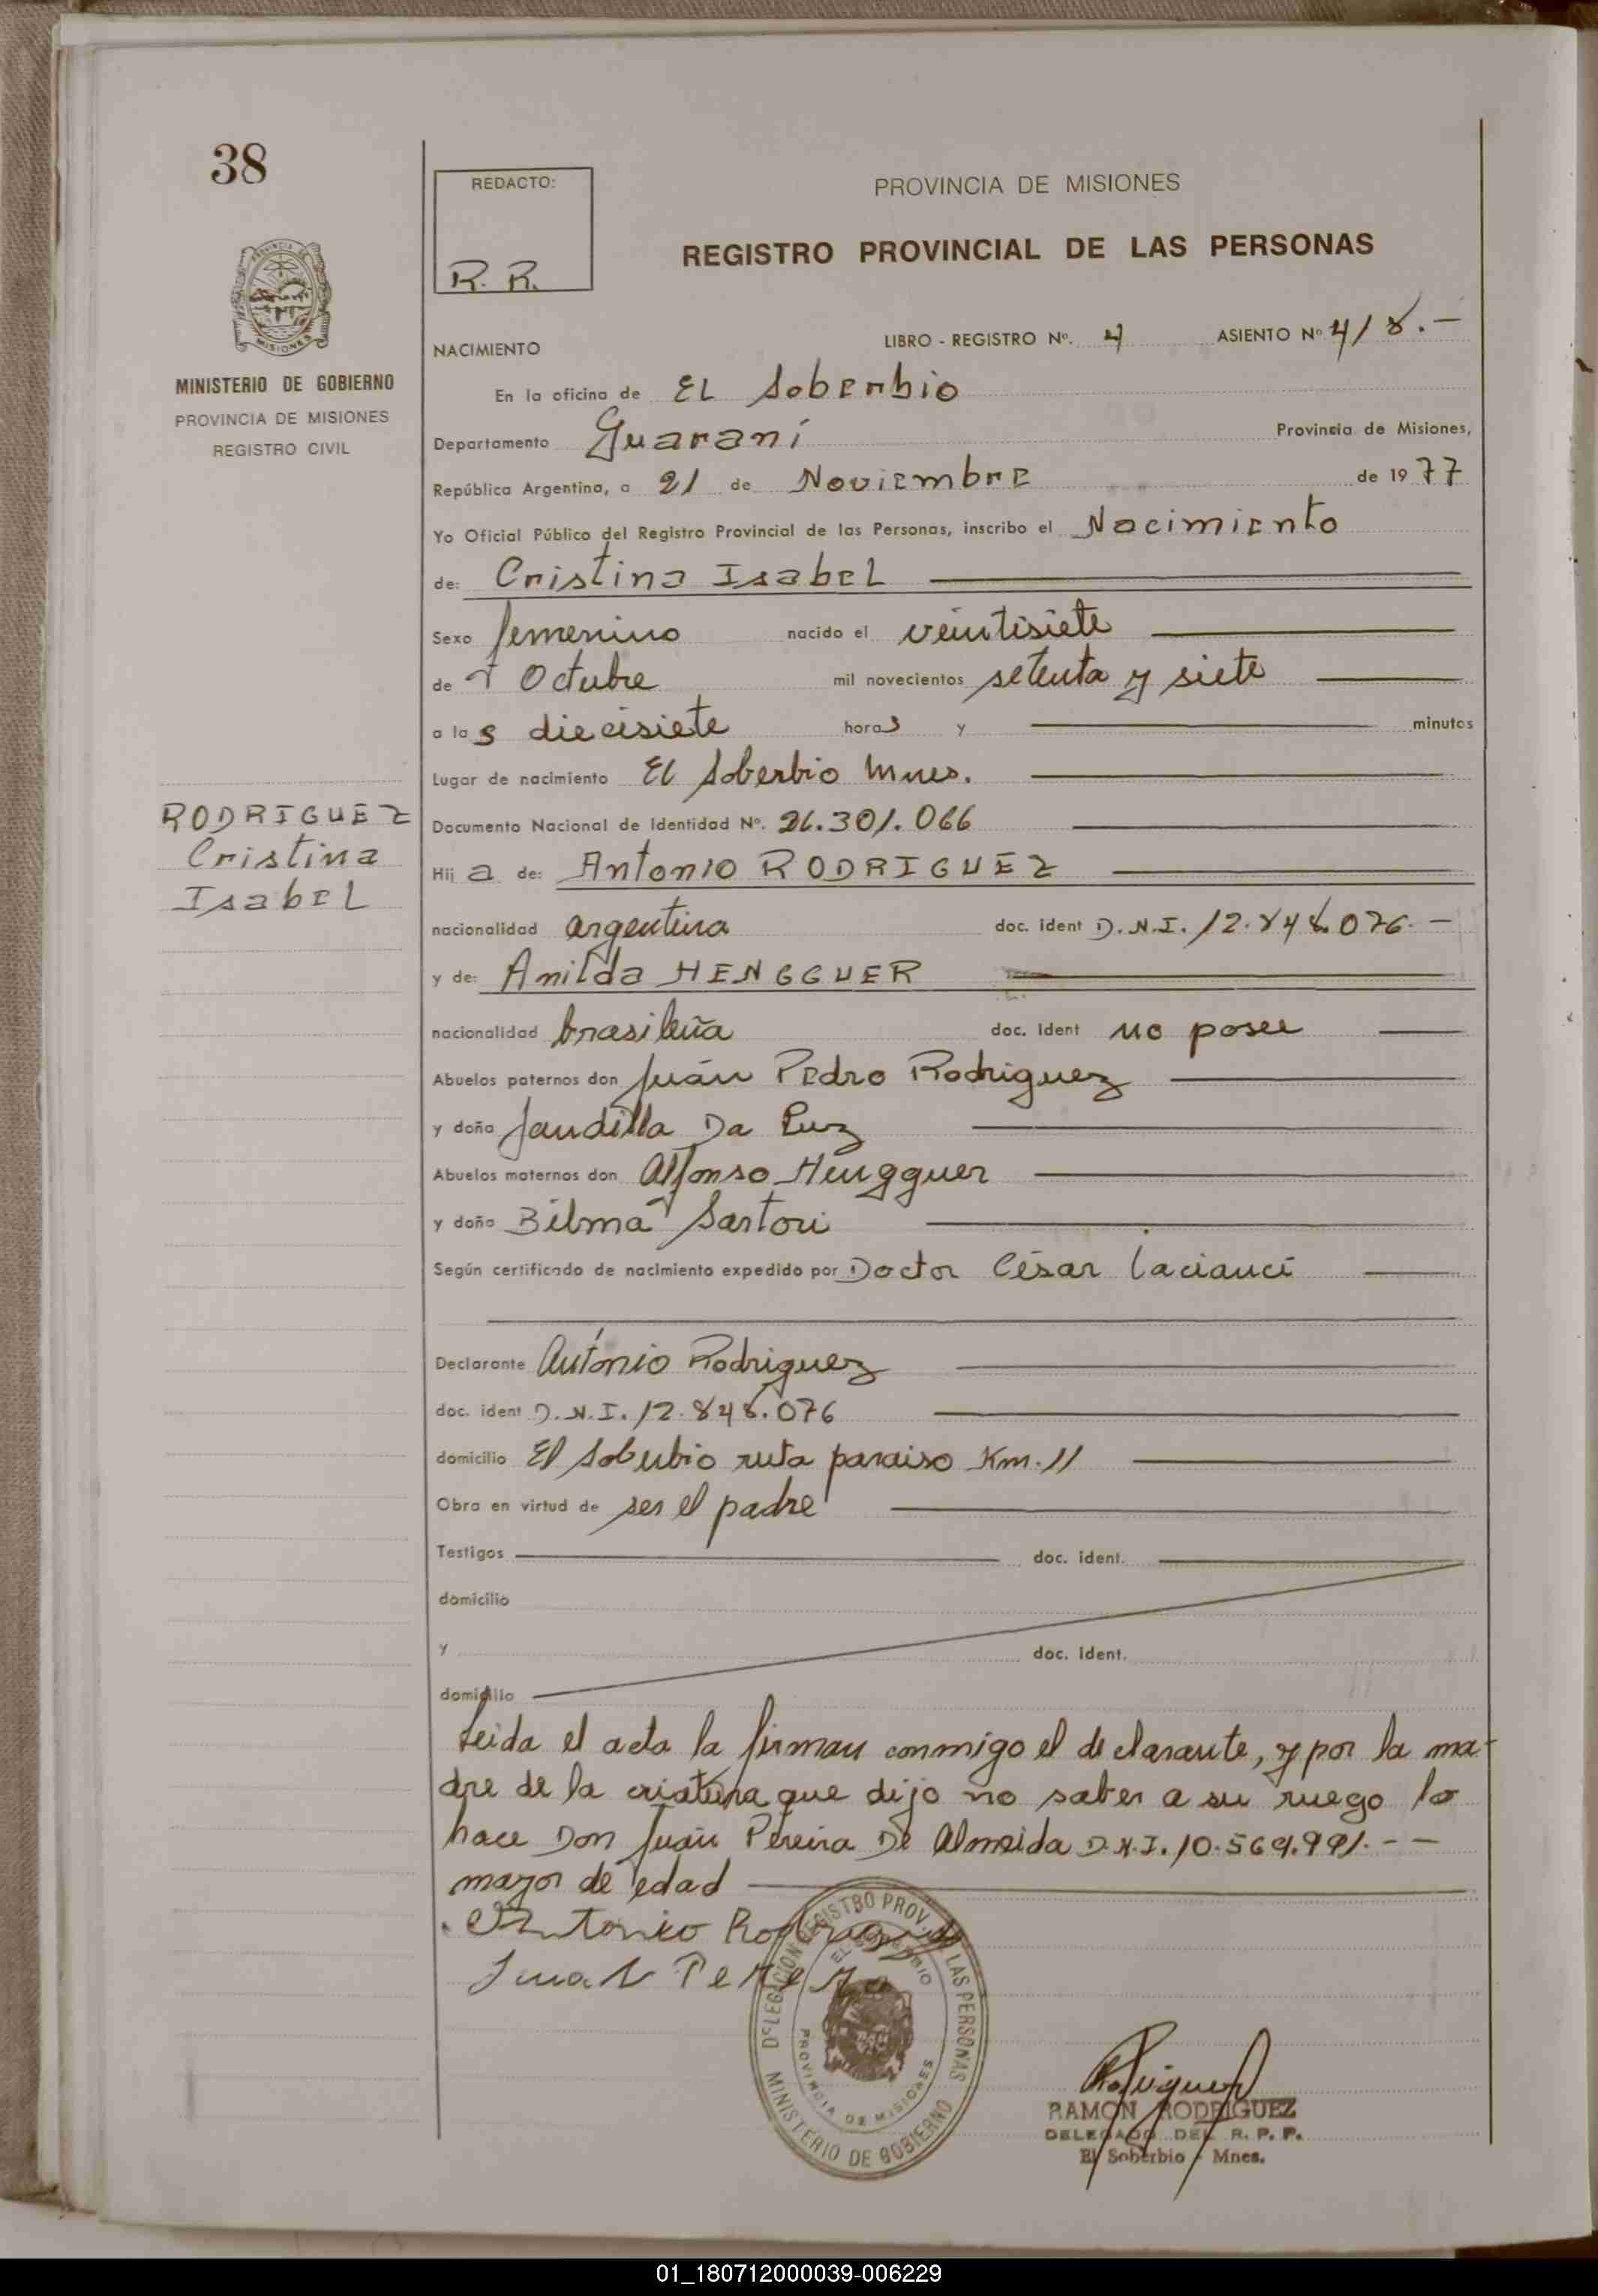 38
PROVINCIA DE MISIONES
MINISTERIO DE GOBIERNO
PROVINCIA DE MISIONES
REGISTRO CIVIL
RODRIGUEZ
Cristina
Isabel
REDACTO:
R. R.
PROVINCIA DE MISIONES
REGISTRO PROVINCIAL DE LAS PERSONAS
NACIMIENTO LIBRO - REGISTRO Nº. 4 ASIENTO Nº 418.-
En la oficina de EL Soberbio
Departamento Guaraní Provincia de Misiones,
República Argentina, a 21 de Noviembre de 1977
Yo Oficial Público del Registro Provincial de las Personas, inscribo el Nacimiento
de: Cristina Isabel
Sexo femenino nacido el veintisiete
de Octubre mil novecientos setenta y siete
a las diecisiete horas y minutos
Lugar de nacimiento El Soberbio Mnes.
Documento Nacional de Identidad Nº. 26.301.066
Hija de: Antonio RODRIGUEZ
nacionalidad argentina doc. ident D.N.I. 12.848.076.-
y de: Anilda HENGGUER
nacionalidad brasileña doc. ident no posee
Abuelos paternos don Juán Pedro Rodriguez
y doña Jandilla Da Luz
Abuelos maternos don Alfonso Hengguer
y doña Bilma Sartori
Según certificado de nacimiento expedido por Doctor César
Declarante António Rodriguez
doc. ident D.N.I. 12.848.076
domicilio El Soberbio ruta paraiso Km. 11
Obra en virtud de ser el padre
Testigos doc. ident.
domicilio
y doc. ident.
domicilio
Leida el acta la firman conmigo el declarante, y por la ma-
dre de la criatura que dijo no saber a su ruego lo
hace Don Juán Pereira De Almeida D.N.I. 10.569.991.--
mayor de edad
Antonio Rodriguez
Juan Pereira
DELEGACION REGISTRO PROV. DE LAS PERSONAS
EL SOBERBIO
PROVINCIA DE MISIONES
MINISTERIO DE GOBIERNO
Rodriguez
RAMON RODRIGUEZ
DELEGADO DEL R. P. P.
El Soberbio - Mnes.
01_180712000039-006229